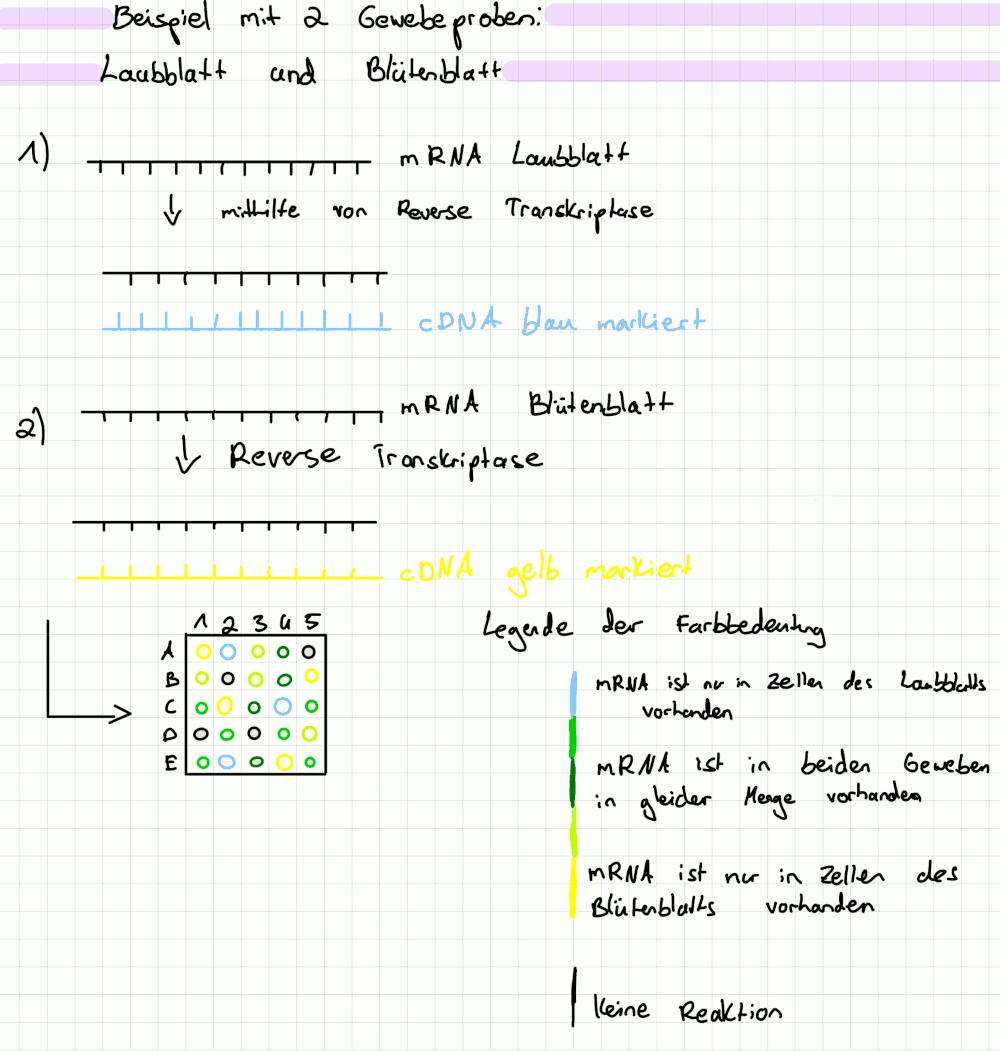 Beispiel mit 2 Gewebeproben:
Laubblatt und Blütenblatt
1)
mRNA Laubblatt
↓ mithilfe von Reverse Transkriptase
cDNA blau markiert
2)
mRNA Blütenblatt
↓ Reverse Transkriptase
cDNA gelb markiert
1 2 3 4 5
A
B
C
D
E
Legende der Farbbedeutung
mRNA ist nur in Zellen des Laubblatts
vorhanden
mRNA ist in beiden Geweben
in gleicher Menge vorhanden
mRNA ist nur in Zellen des
Blütenblatts vorhanden
Keine Reaktion